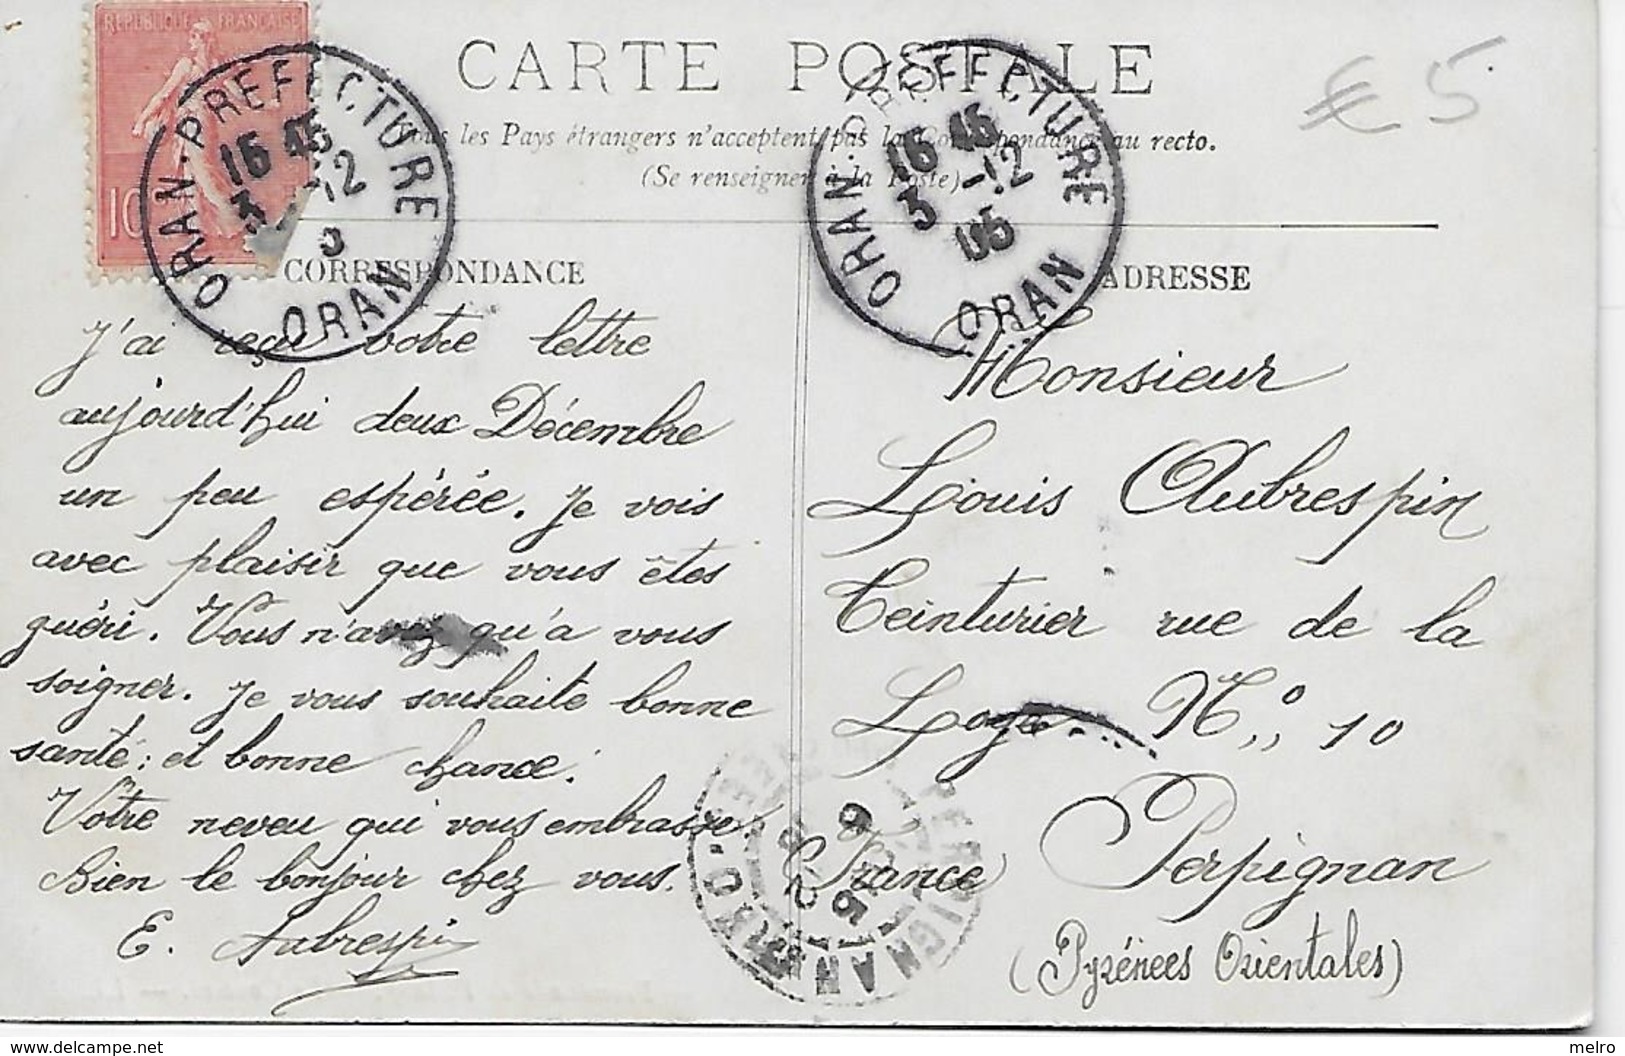 REPUBLIQUE FRANÇAISE
10
CARTE POSTALE
€ 5
Tous les Pays étrangers n'acceptent pas la Correspondance au recto.
(Se renseigner à la Poste)
ORAN-PREFECTURE
16 45
3 -12
ORAN
ORAN-PREFECTURE
16 45
3 -12
05
ORAN
CORRESPONDANCE
J'ai reçu votre lettre
aujourd'hui deux Décembre
un peu espérée. Je vois
avec plaisir que vous êtes
guéri. Vous n'avez qu'à vous
soigner. Je vous souhaite bonne
santé; et bonne chance.
Vôtre neveu qui vous embrasse
Bien le bonjour chez vous.
E. Aubrespin
ADRESSE
Monsieur
Louis Aubrespin
Teinturier rue de la
Loge N.º,, 10
Perpignan
(France)
(Pyrénées Orientales)
PERPIGNAN
melro
www.delcampe.net